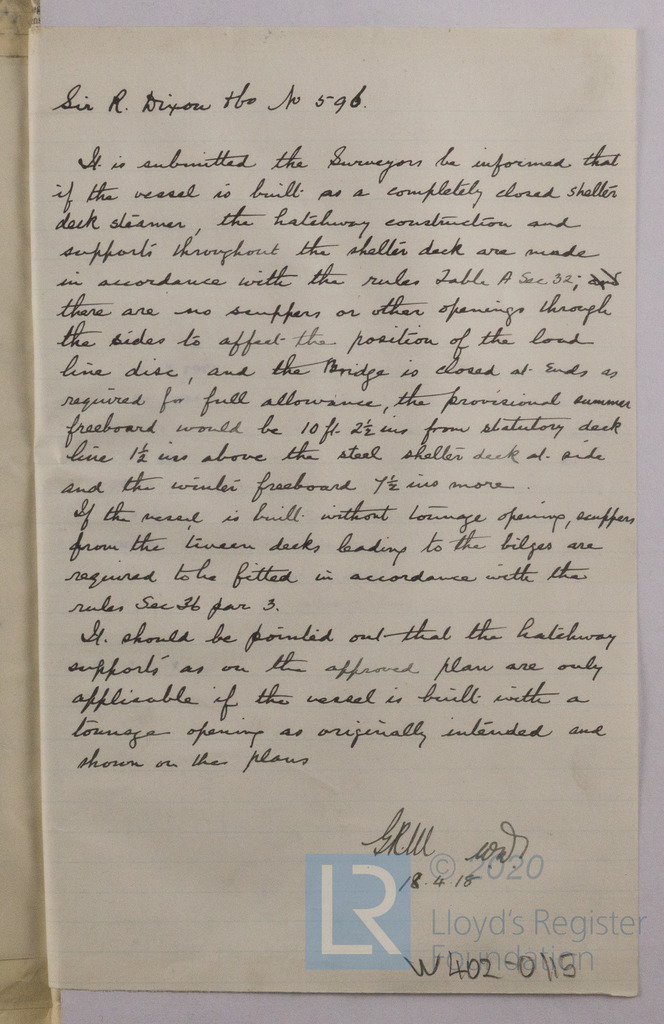 Sir R. Dixon & Co No 596.
It is submitted the Surveyors be informed that
if the vessel is built as a completely closed shelter
deck steamer, the hatchway construction and
supports throughout the shelter deck are made
in accordance with the rules Table A Sec 32; and
there are no scuppers or other openings through
the sides to affect the position of the load
line disc, and the Bridge is closed at Ends as
required for full allowance, the provisional summer
freeboard would be 10 ft. 2½ ins from statutory deck
line 1½ ins above the steel shelter deck at side
and the winter freeboard 7½ ins more.
If the vessel is built without tonnage opening, scuppers
from the tween decks leading to the bilges are
required to be fitted in accordance with the
rules Sec 36 par 3.
It should be pointed out that the hatchway
supports as on the approved plan are only
applicable if the vessel is built with a
tonnage opening as originally intended and
shown on the plans
18.4.18
© 2020
LR
Lloyd's Register
Foundation
W402-0115